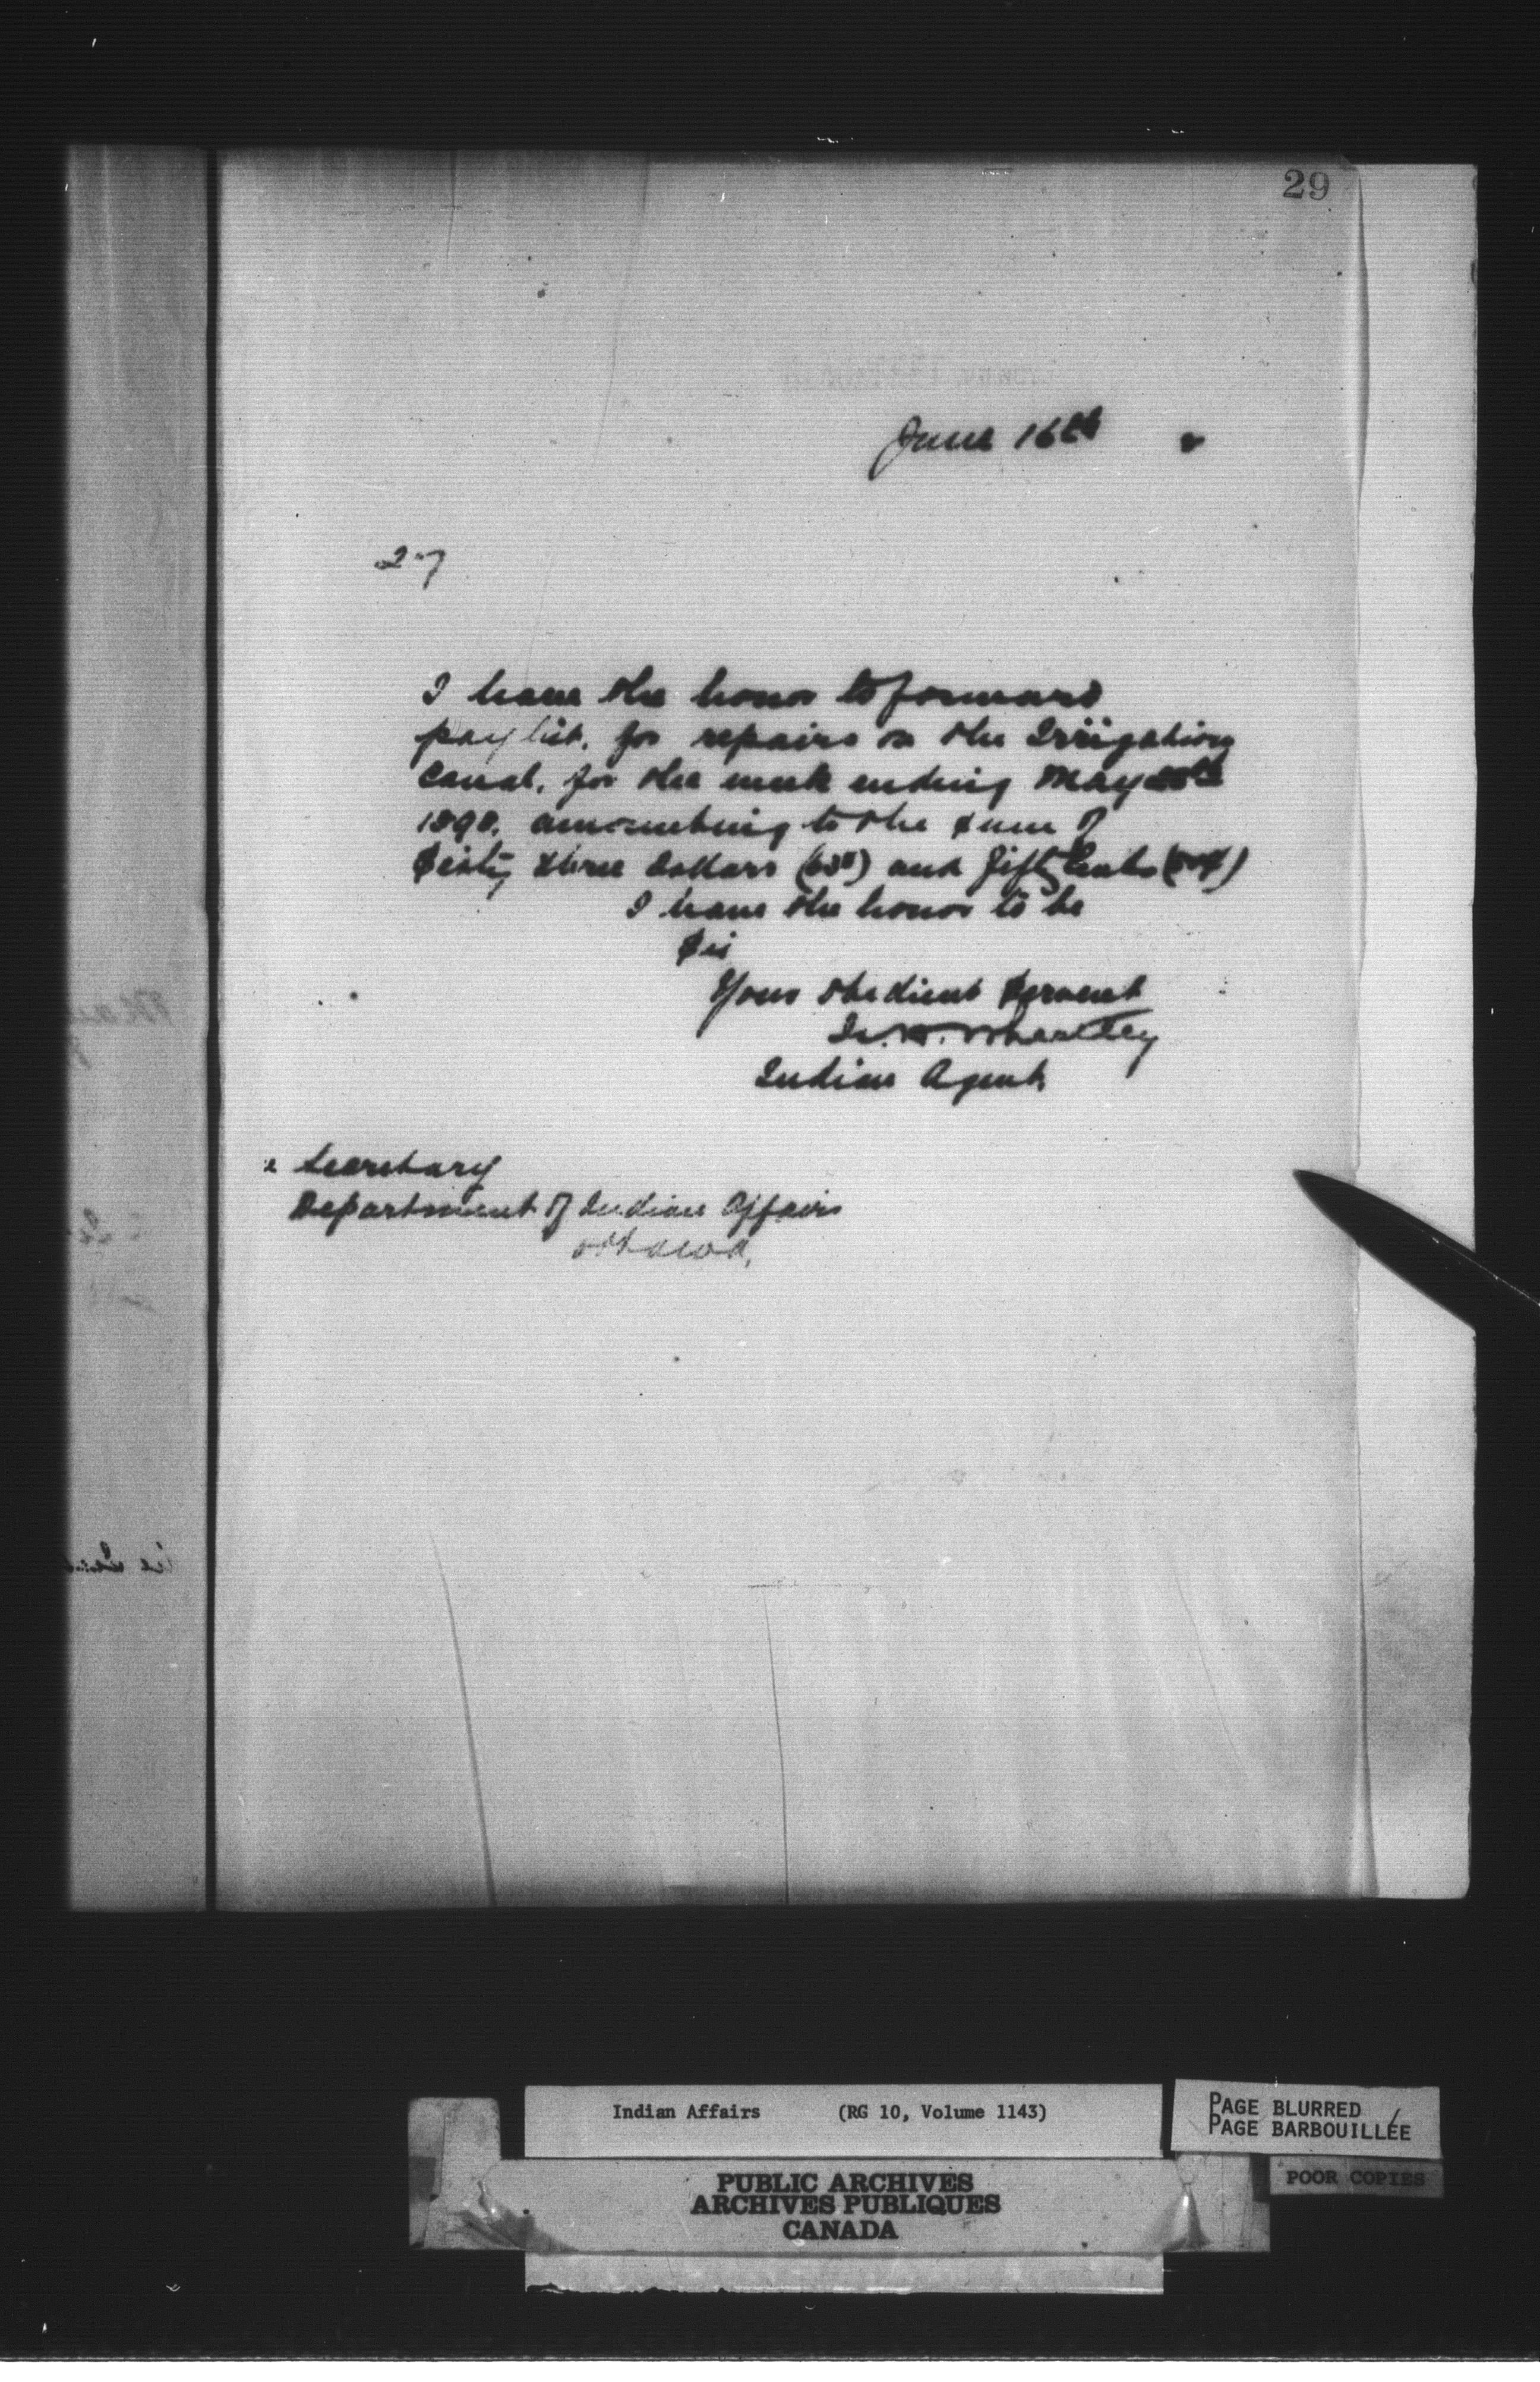 29
June 16th
27
I have the honor to forward
pay list, for repairs on the Irrigation
Canal, for the week ending May
1898, amounting to the sum of
Sixty three Dollars and fifty cents (50¢)
I have the honor to be
Sir
Your obedient Servant
Wheatley
Indian Agent
e Secretary
Department of Indian Affairs
Ottawa,
Indian Affairs (RG 10, Volume 1143)
PAGE BLURRED
PAGE BARBOUILLÉE
POOR COPIES
PUBLIC ARCHIVES
ARCHIVES PUBLIQUES
CANADA